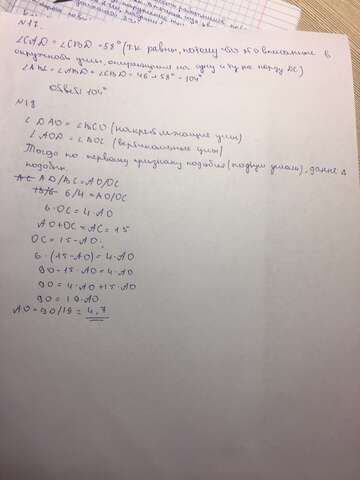 N17.
∠CAD = ∠CBD = 58° (т.к. равны, потому что это вписанные в
окружность углы, опирающиеся на одну и ту же хорду DC)
∠ABC = ∠ABD + ∠CBD = 46° + 58° = 104°
Ответ: 104°
N18
∠DAO = ∠BCO (накрест лежащие углы)
∠AOD = ∠BOC (вертикальные углы)
Тогда по первому признаку подобия (по двум углам), данные Δ
подобны.
AD/BC = AO/OC
6/4 = AO/OC
6·OC = 4·AO
AO+OC = AC = 15
OC = 15-AO;
6·(15-AO) = 4·AO
90-15·AO = 4·AO
90 = 4·AO+15·AO
90 = 19·AO
AO = 90/19 = 4,7